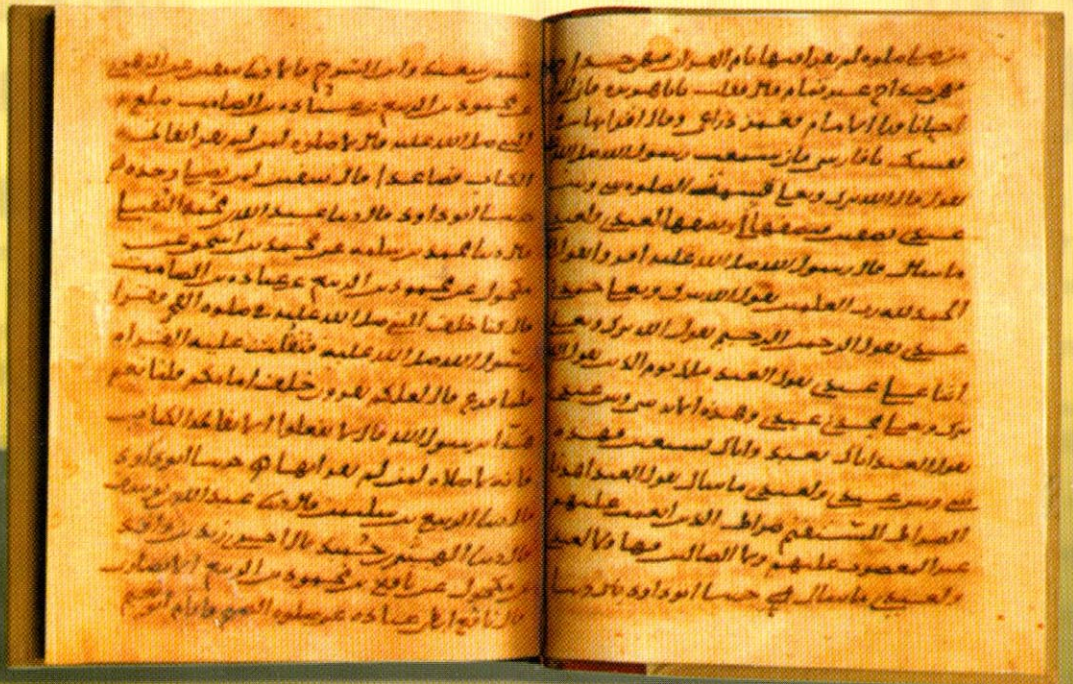 من صلى صلوه لم يقرا فيها بام القران فهي خداج
فهي خداج غير تمام قال فقلت يابا هريره فاني
احيانا ورا الامام فغمز ذراعي وقال اقرا بها
نفسك يا فارسي فاني سمعت رسول الله صلى الله
يقول قال الله تبرك وتعلى قسمت الصلوه بيني وبين
عبدي نصفين فنصفها لي ونصفها لعبدي ولعبدي
ما سال قال رسول الله صلى الله عليه اقروا يقول
الحمد لله رب العلمين يقول الله تبرك وتعلى حمدني
عبدي يقول الرحمن الرحيم يقول الله تبرك وتعلى
اثنا علي عبدي يقول العبد ملك يوم الدين يقول الله
تبرك وتعلى مجدني عبدي وهذه الايه بيني وبين عبدي
يقول العبد اياك نعبد واياك نستعين فهذه
بيني وبين عبدي ولعبدي ما سال يقول العبد اهدنا
الصراط المستقيم صراط الذين انعمت عليهم
غير المغضوب عليهم ولا الضالين فهاولا لعبدي
ولعبدي ما سال حدثنا ابو داود قال دثنا
قتيبه بن سعيد وابن السرح قالا دثنا سفين عن الزهري
عن محمود بن الربيع عن عباده بن الصامت يبلغ به
النبي صلى الله عليه قال لا صلوه لمن لم يقرا بفاتحه
الكتاب فصاعدا قال سفين لمن يصلي وحده
حدثنا ابو داود قال دثنا عبد الله بن محمد النفيلي
قال دثنا محمد بن سلمه عن محمد بن اسحق عن
مكحول عن محمود بن الربيع عن عباده بن الصامت
قال كنا خلف النبي صلى الله عليه في صلوه الفجر فقرا
رسول الله صلى الله عليه فثقلت عليه القراه
فلما فرغ قال لعلكم تقرون خلف امامكم قلنا نعم
هذا يرسول الله قال لا تفعلوا الا بفاتحه الكتاب
فانه لا صلاه لمن لم يقرا بها حدثنا ابو داود
قال دثنا الربيع بن سليمن قال دثنا عبد الله بن يوسف
قال دثنا الهيثم بن حميد قال اخبرني زيد بن واقد
عن مكحول عن نافع بن محمود بن الربيع الانصاري
قال نافع ابطا عباده عن صلوه الصبح فاقام ابو نعيم